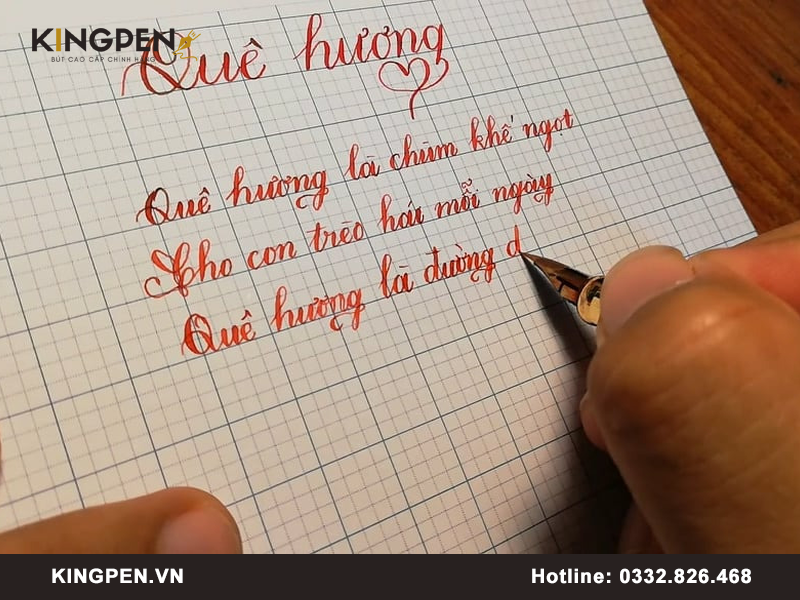 KINGPEN
BÚT CAO CẤP CHÍNH HÃNG
Quê hương
Quê hương là chùm khế ngọt
Cho con trèo hái mỗi ngày
Quê hương là đường đ
KINGPEN.VN
Hotline: 0332.826.468